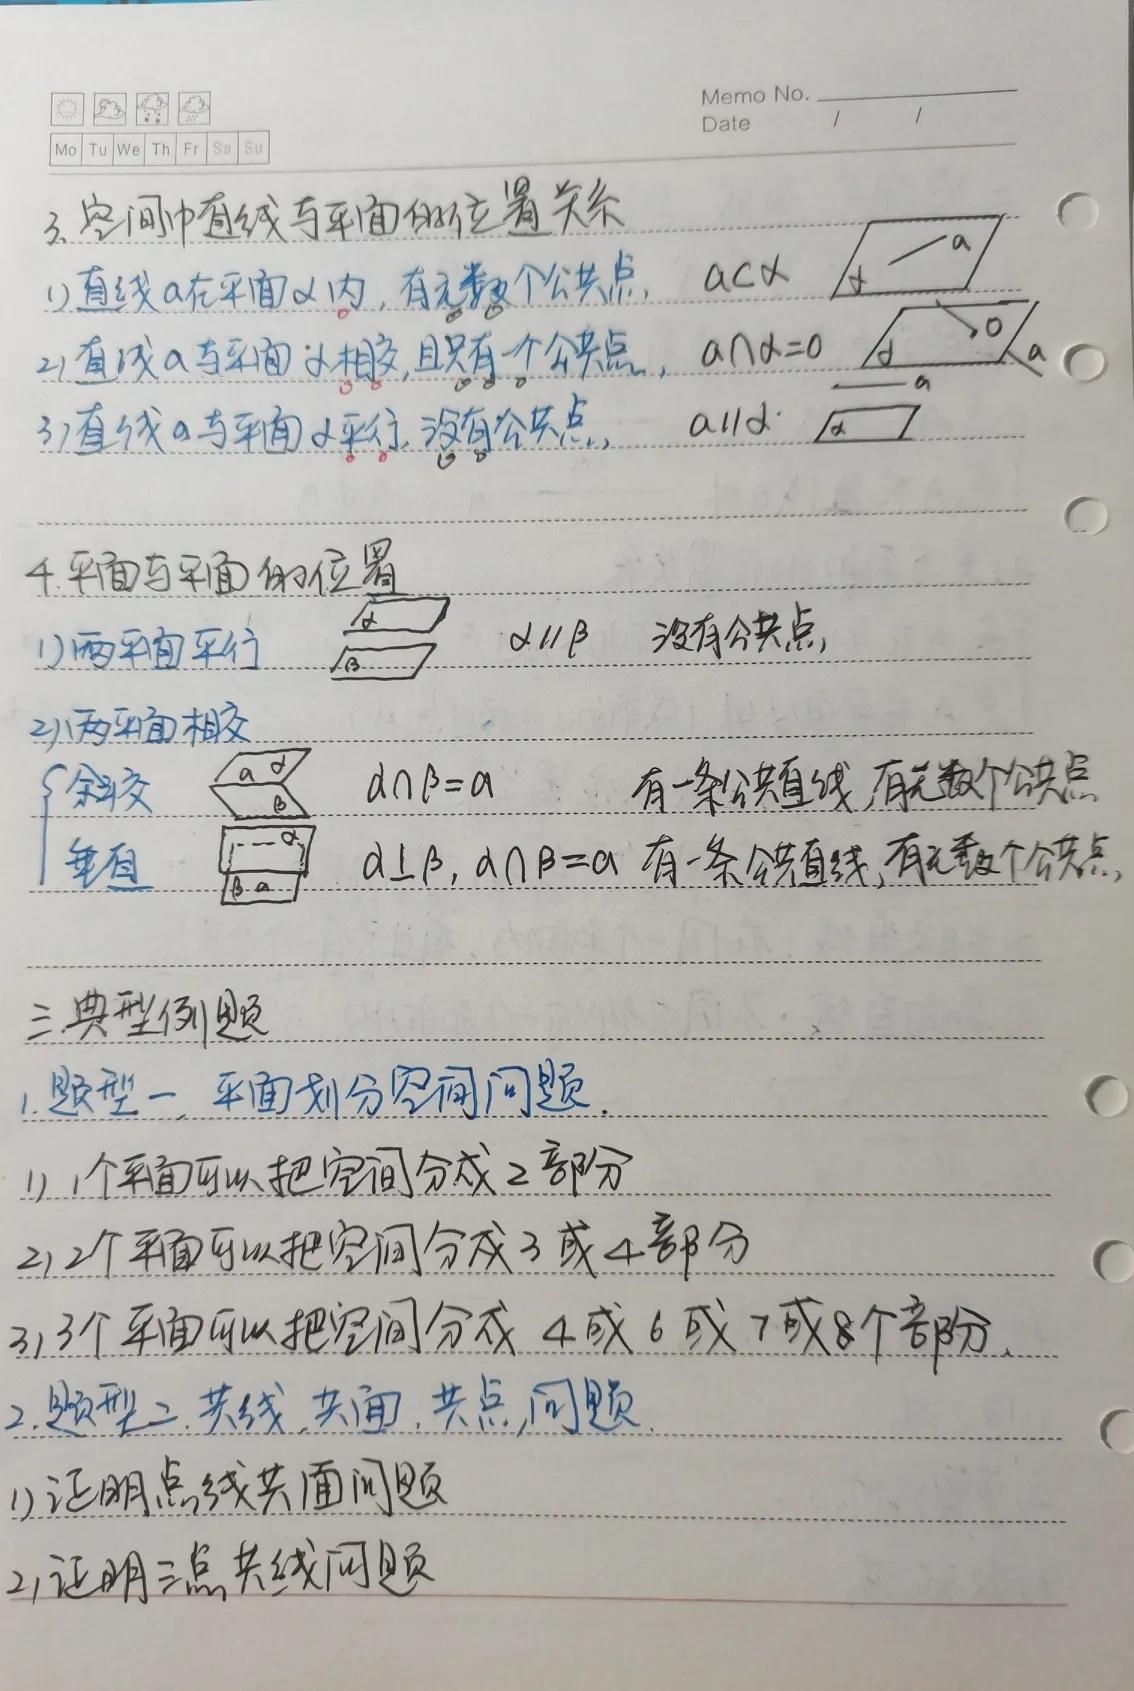 Memo No.
Date / /
Mo Tu We Th Fr Sa Su
3. 空间中直线与平面的位置关系
1) 直线a在平面α内, 有无数个公共点, a⊂α α a
2) 直线a与平面α相交, 且只有一个公共点, a∩α=O α O a
3) 直线a与平面α平行, 没有公共点, a//α. a α
4. 平面与平面的位置
1) 两平面平行 α β α//β 没有公共点,
2) 两平面相交
斜交 a α β α∩β=a 有一条公共直线, 有无数个公共点
垂直 α β a α⊥β, α∩β=a 有一条公共直线, 有无数个公共点,
三. 典型例题
1. 题型一, 平面划分空间问题.
1) 1个平面可以把空间分成2部分
2) 2个平面可以把空间分成3或4部分
3) 3个平面可以把空间分成4或6或7或8个部分.
2. 题型二. 共线, 共面, 共点, 问题.
1) 证明点线共面问题
2) 证明三点共线问题